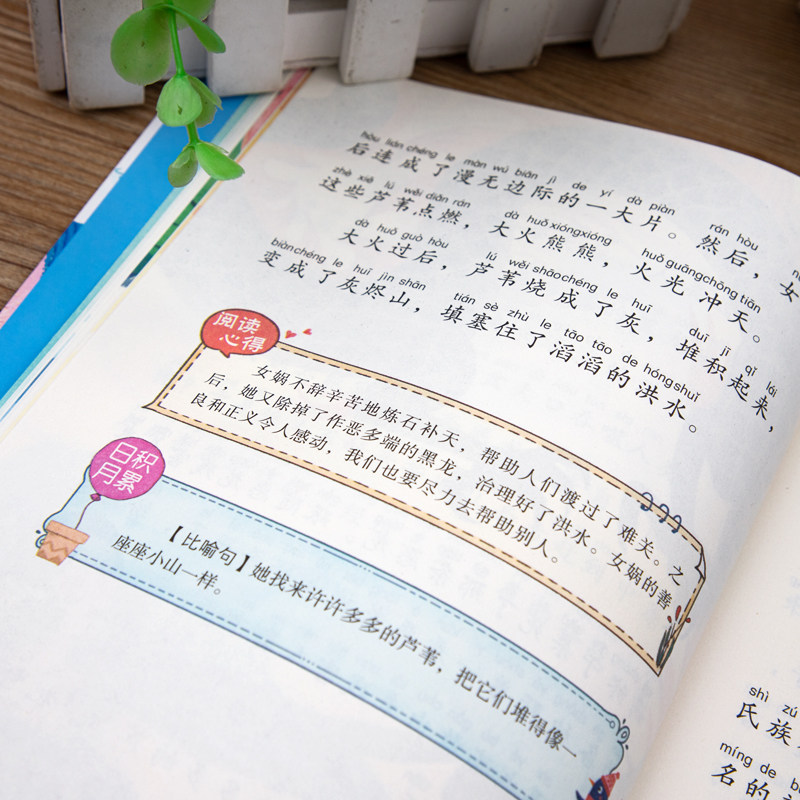 hòu lián chéng le màn wú biān jì de yí dà piàn rán hòu
后连成了漫无边际的一大片。然后，女
zhè xiē lú wěi diǎn rán dà huǒ xióng xióng huǒ guāng chōng tiān
这些芦苇点燃，大火熊熊，火光冲天。
dà huǒ guò hòu lú wěi shāo chéng le huī duī jī qǐ lái
大火过后，芦苇烧成了灰，堆积起来，
biàn chéng le huī jìn shān tián sè zhù le tāo tāo de hóng shuǐ
变成了灰烬山，填塞住了滔滔的洪水。
阅读
心得
女娲不辞辛苦地炼石补天，帮助人们渡过了难关。之
后，她又除掉了作恶多端的黑龙，治理好了洪水。女娲的善
良和正义令人感动，我们也要尽力去帮助别人。
日积
月累
【比喻句】她找来许许多多的芦苇，把它们堆得像一
座座小山一样。
shì zú
氏族
míng de
名的